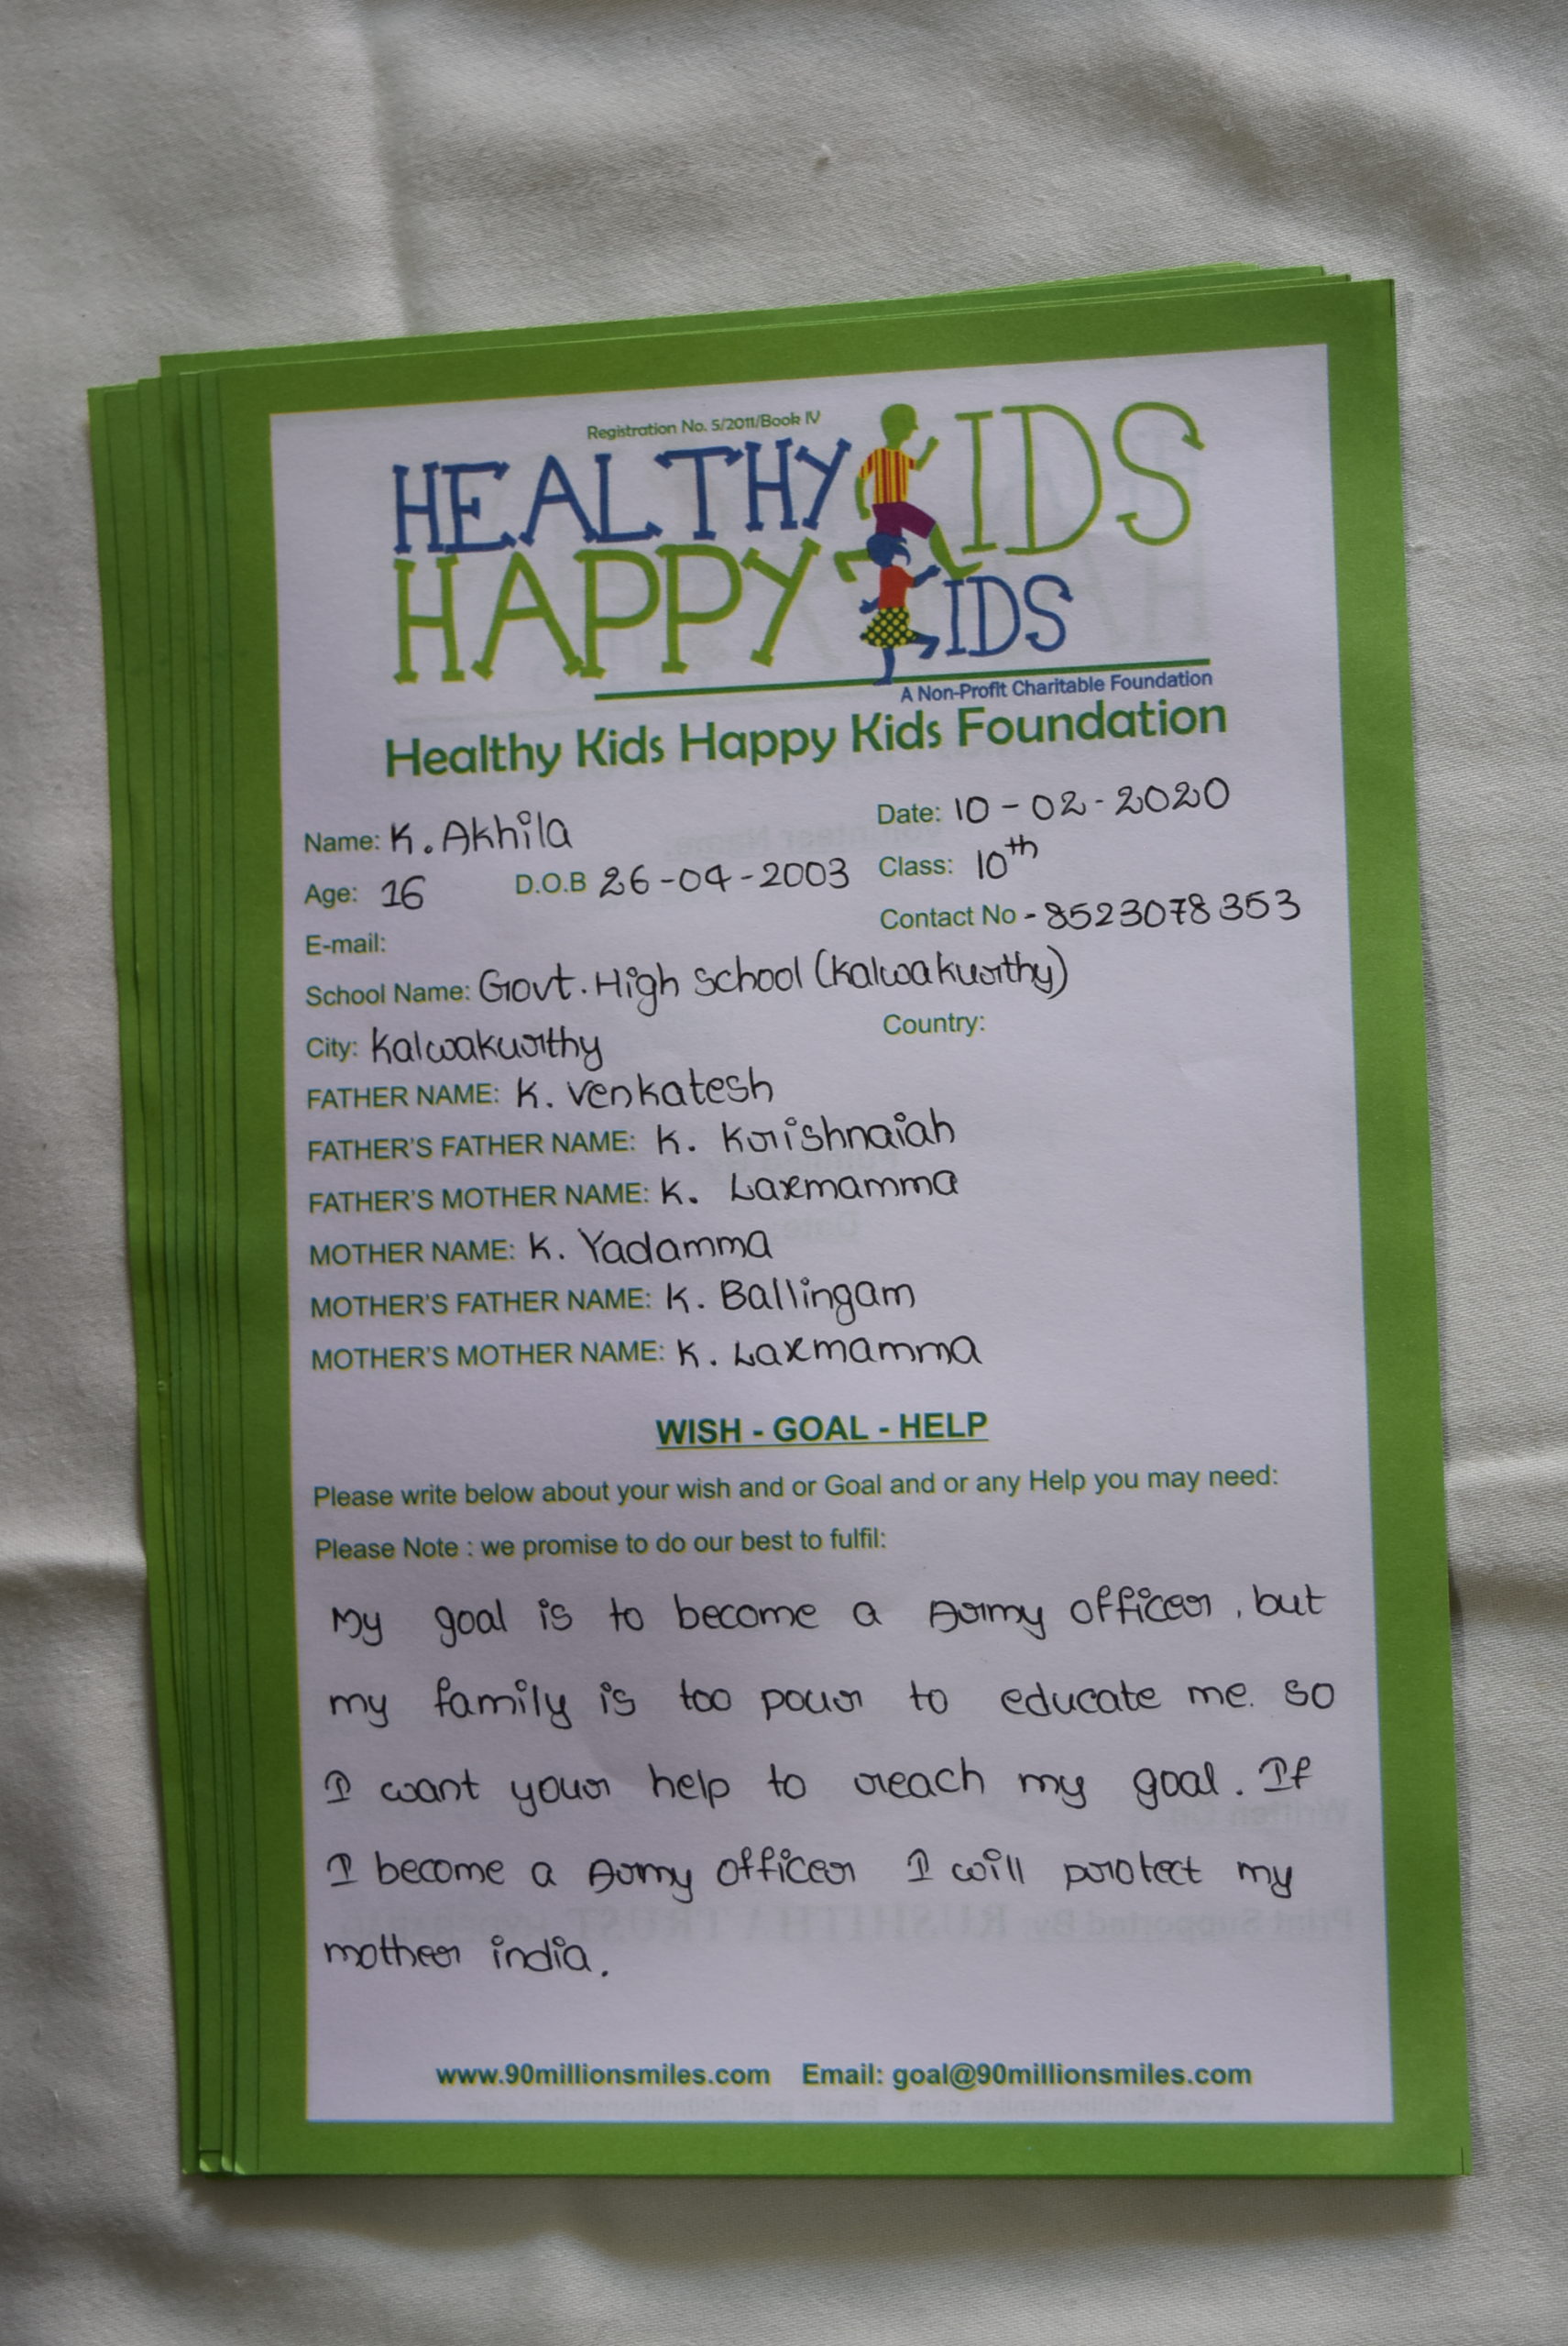 Registration No. 5/2011/Book IV
HEALTHY KIDS
HAPPY KIDS
A Non-Profit Charitable Foundation
Healthy Kids Happy Kids Foundation
Name: K. Akhila Date: 10-02-2020
Age: 16 D.O.B 26-04-2003 Class: 10th
E-mail: Contact No - 8523078353
School Name: Govt. High School (Kalwakurthy)
City: Kalwakurthy Country:
FATHER NAME: K. Venkatesh
FATHER'S FATHER NAME: K. Krishnaiah
FATHER'S MOTHER NAME: K. Laxmamma
MOTHER NAME: K. Yadamma
MOTHER'S FATHER NAME: K. Ballingam
MOTHER'S MOTHER NAME: K. Laxmamma
WISH - GOAL - HELP
Please write below about your wish and or Goal and or any Help you may need:
Please Note : we promise to do our best to fulfil:
My goal is to become a Army officer, but
my family is too pour to educate me. so
I want your help to reach my goal. If
I become a Army officer I will protect my
mother india.
www.90millionsmiles.com Email: goal@90millionsmiles.com